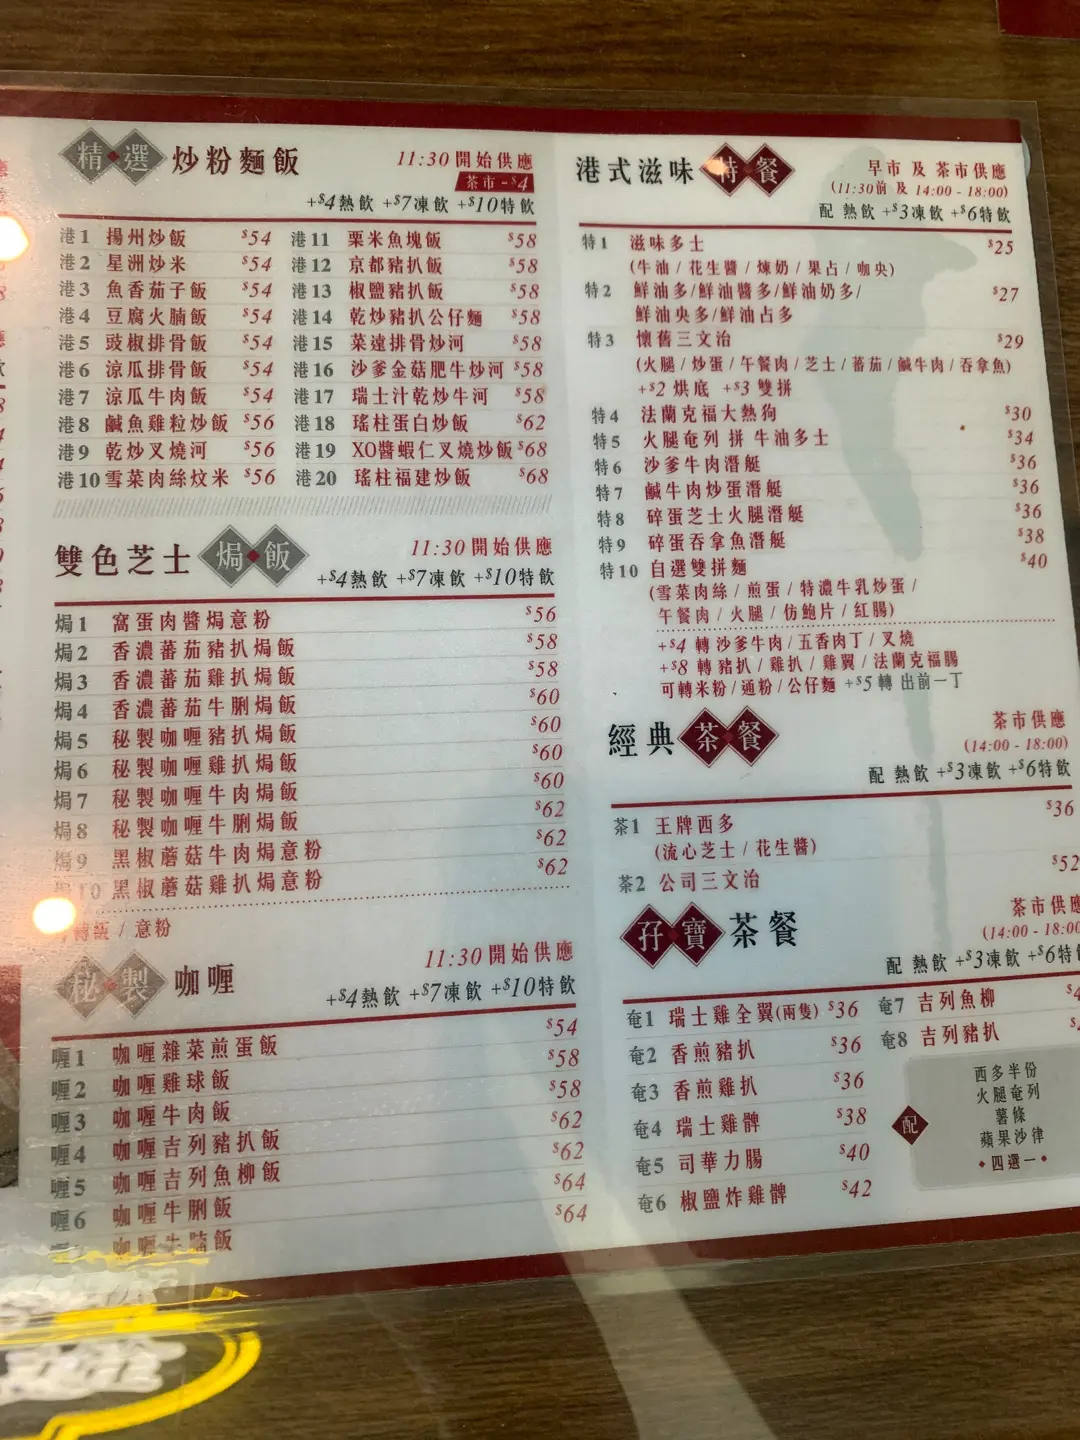 精選 炒粉麵飯
11:30開始供應
茶市-$4
+$4熱飲 +$7凍飲 +$10特飲
港1 揚州炒飯 $54
港2 星洲炒米 $54
港3 魚香茄子飯 $54
港4 豆腐火腩飯 $54
港5 豉椒排骨飯 $54
港6 涼瓜排骨飯 $54
港7 涼瓜牛肉飯 $54
港8 鹹魚雞粒炒飯 $56
港9 乾炒叉燒河 $56
港10 雪菜肉絲炆米 $56
港11 栗米魚塊飯 $58
港12 京都豬扒飯 $58
港13 椒鹽豬扒飯 $58
港14 乾炒豬扒公仔麵 $58
港15 菜遠排骨炒河 $58
港16 沙爹金菇肥牛炒河 $58
港17 瑞士汁乾炒牛河 $58
港18 瑤柱蛋白炒飯 $62
港19 XO醬蝦仁叉燒炒飯 $68
港20 瑤柱福建炒飯 $68
雙色芝士 焗飯
11:30開始供應
+$4熱飲 +$7凍飲 +$10特飲
焗1 窩蛋肉醬焗意粉 $56
焗2 香濃蕃茄豬扒焗飯 $58
焗3 香濃蕃茄雞扒焗飯 $58
焗4 香濃蕃茄牛脷焗飯 $60
焗5 秘製咖喱豬扒焗飯 $60
焗6 秘製咖喱雞扒焗飯 $60
焗7 秘製咖喱牛肉焗飯 $60
焗8 秘製咖喱牛脷焗飯 $62
焗9 黑椒蘑菇牛肉焗意粉 $62
焗10 黑椒蘑菇雞扒焗意粉 $62
轉飯 / 意粉
秘製 咖喱
11:30開始供應
+$4熱飲 +$7凍飲 +$10特飲
喱1 咖喱雜菜煎蛋飯 $54
喱2 咖喱雞球飯 $58
喱3 咖喱牛肉飯 $58
喱4 咖喱吉列豬扒飯 $62
喱5 咖喱吉列魚柳飯 $62
喱6 咖喱牛脷飯 $64
咖喱牛腩飯 $64
港式滋味 特餐
早市 及 茶市供應
(11:30前 及 14:00 - 18:00)
配 熱飲 +$3凍飲 +$6特飲
特1 滋味多士 $25
(牛油 / 花生醬 / 煉奶 / 果占 / 咖央)
特2 鮮油多/鮮油醬多/鮮油奶多/ $27
鮮油央多/鮮油占多
特3 懷舊三文治 $29
(火腿 / 炒蛋 / 午餐肉 / 芝士 / 蕃茄 / 鹹牛肉 / 吞拿魚)
+$2 烘底 +$3 雙拼
特4 法蘭克福大熱狗 $30
特5 火腿奄列 拼 牛油多士 $34
特6 沙爹牛肉潛艇 $36
特7 鹹牛肉炒蛋潛艇 $36
特8 碎蛋芝士火腿潛艇 $36
特9 碎蛋吞拿魚潛艇 $38
特10 自選雙拼麵 $40
(雪菜肉絲 / 煎蛋 / 特濃牛乳炒蛋 /
午餐肉 / 火腿 / 仿鮑片 / 紅腸)
+$4 轉 沙爹牛肉 / 五香肉丁 / 叉燒
+$8 轉 豬扒 / 雞扒 / 雞翼 / 法蘭克福腸
可轉米粉 / 通粉 / 公仔麵 +$5 轉 出前一丁
經典 茶餐
茶市供應
(14:00 - 18:00)
配 熱飲 +$3凍飲 +$6特飲
茶1 王牌西多 $36
(流心芝士 / 花生醬)
茶2 公司三文治 $52
孖寶 茶餐
茶市供應
(14:00 - 18:00
配 熱飲 +$3凍飲 +$6特飲
奄1 瑞士雞全翼(兩隻) $36
奄2 香煎豬扒 $36
奄3 香煎雞扒 $36
奄4 瑞士雞髀 $38
奄5 司華力腸 $40
奄6 椒鹽炸雞髀 $42
奄7 吉列魚柳
奄8 吉列豬扒
配
西多半份
火腿奄列
薯條
蘋果沙律
四選一